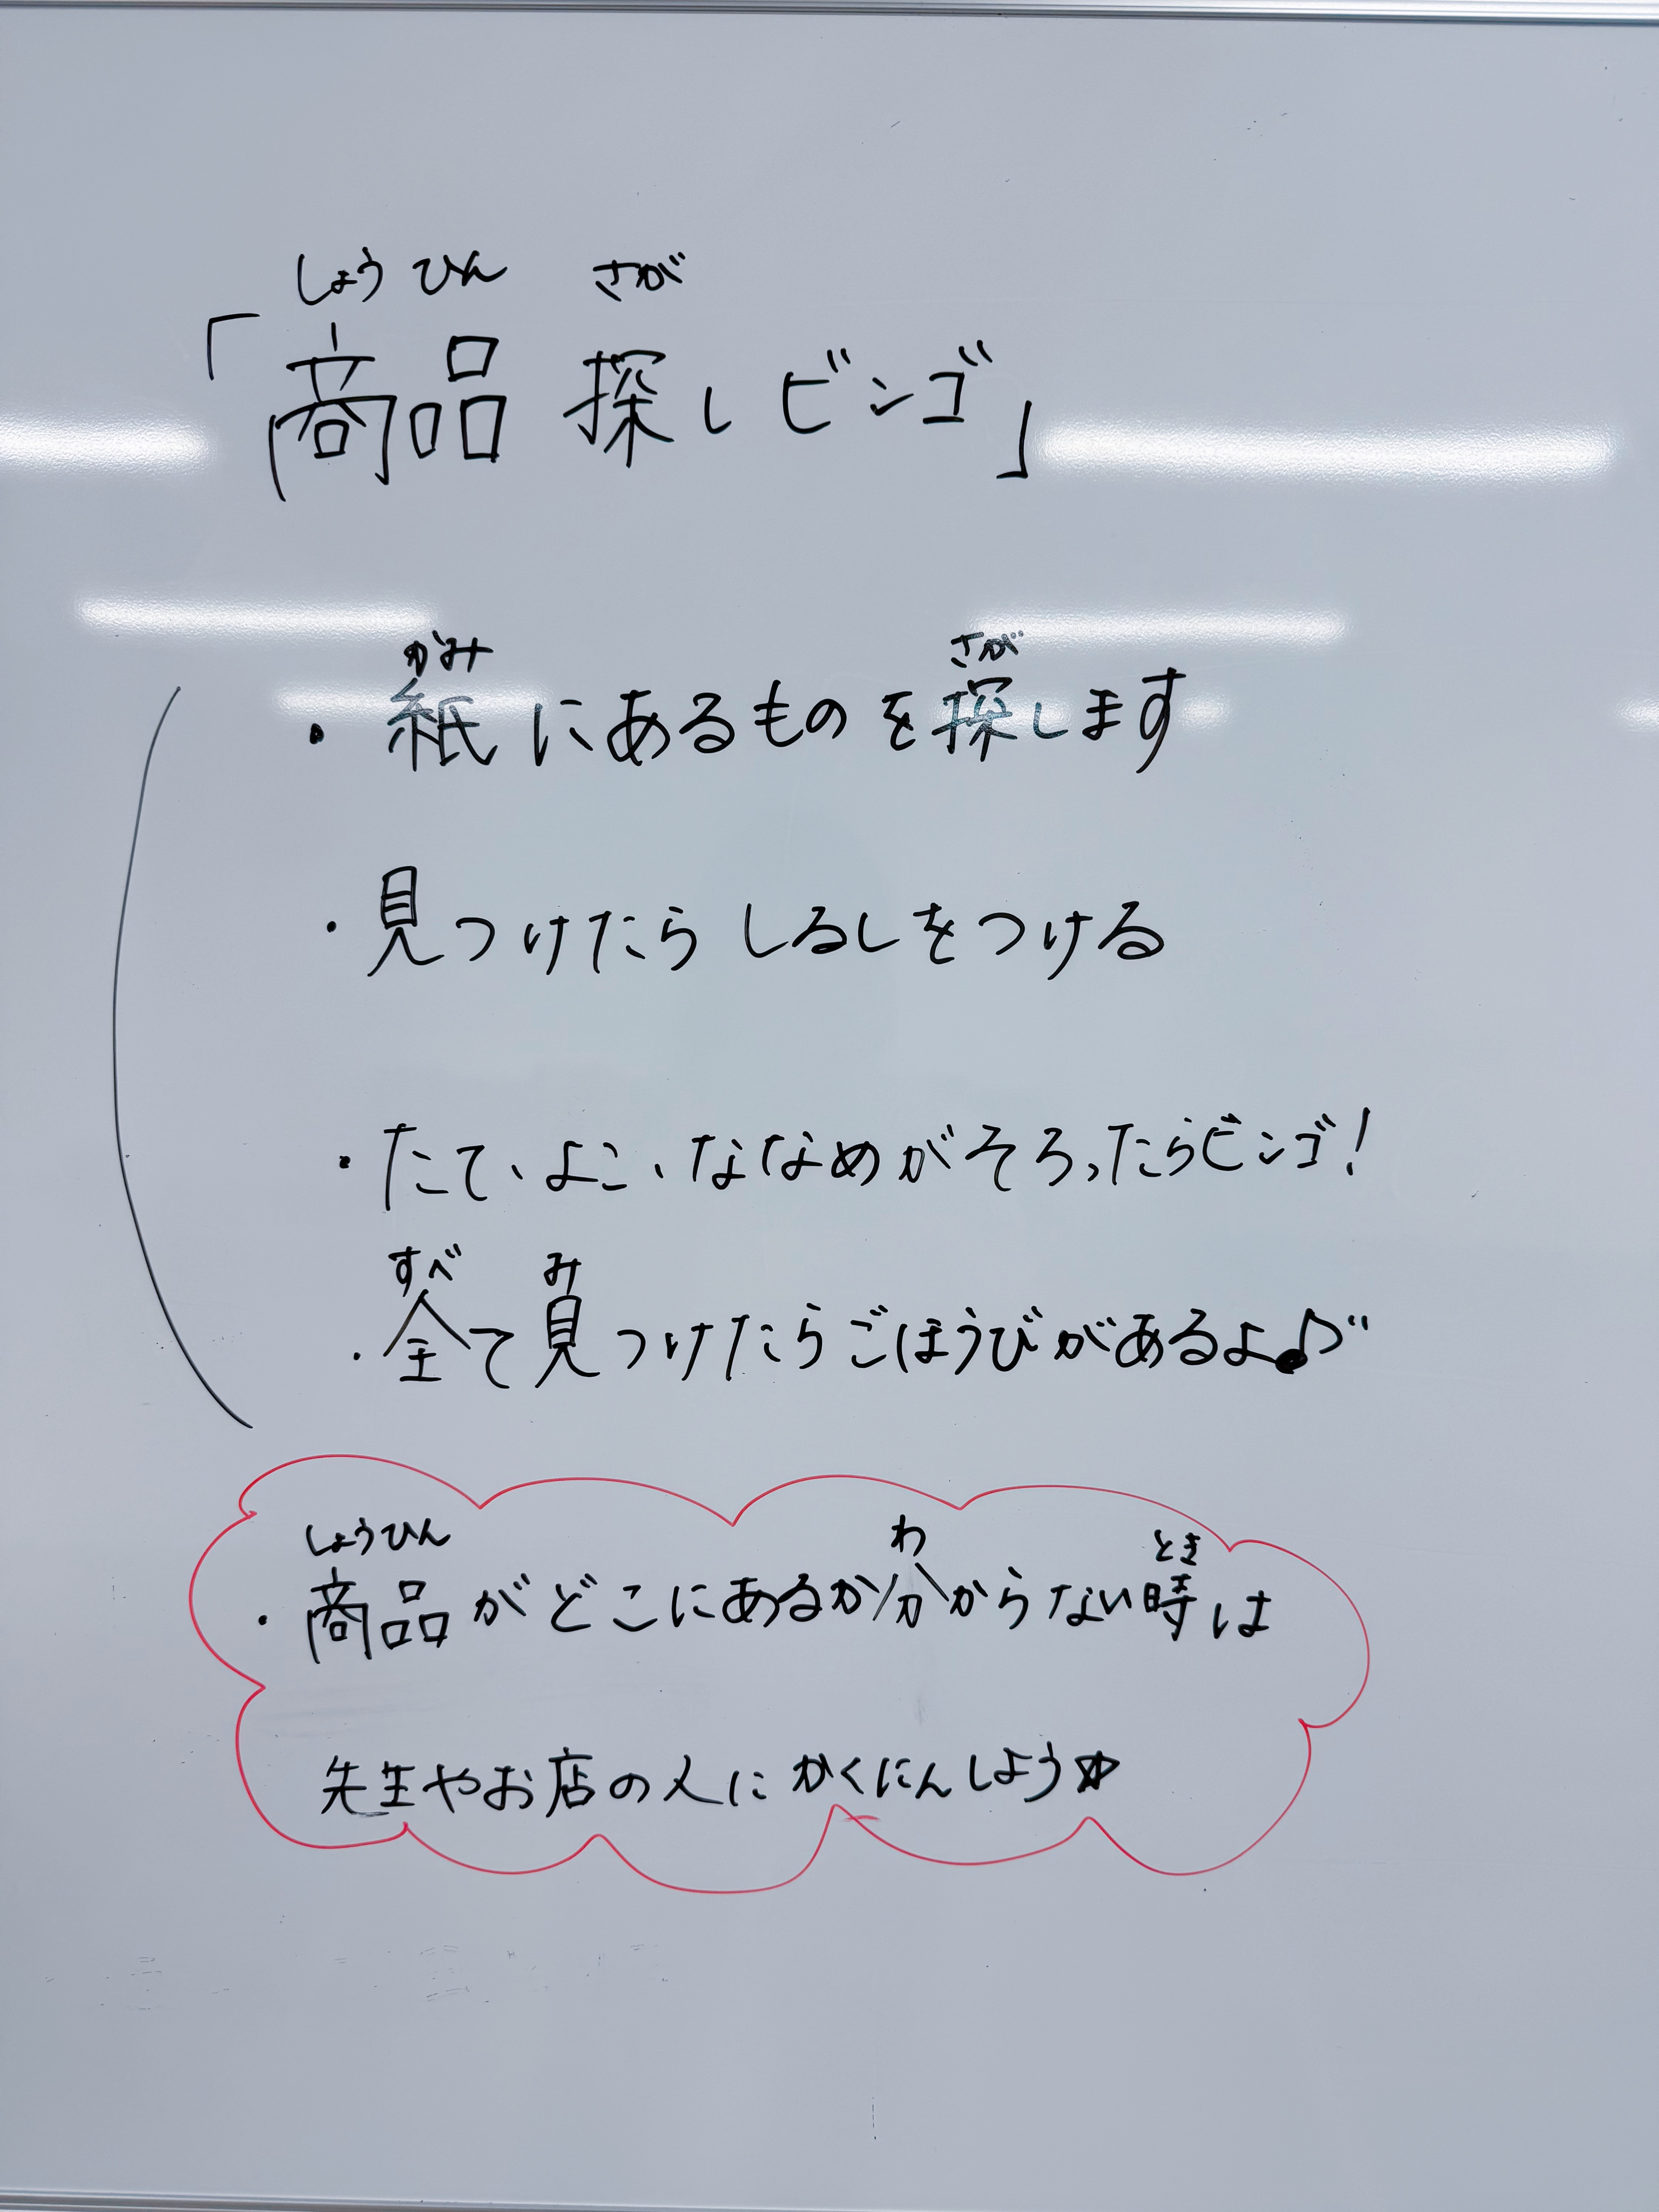 しょうひん さが
「商品探しビンゴ」
かみ さが
・紙にあるものを探します
・見つけたらしるしをつける
・たて、よこ、ななめがそろったらビンゴ!
すべ み
・全て見つけたらごほうびがあるよ♪
しょうひん わ とき
・商品がどこにあるか分からない時は
先生やお店の人にかくにんしよう☆